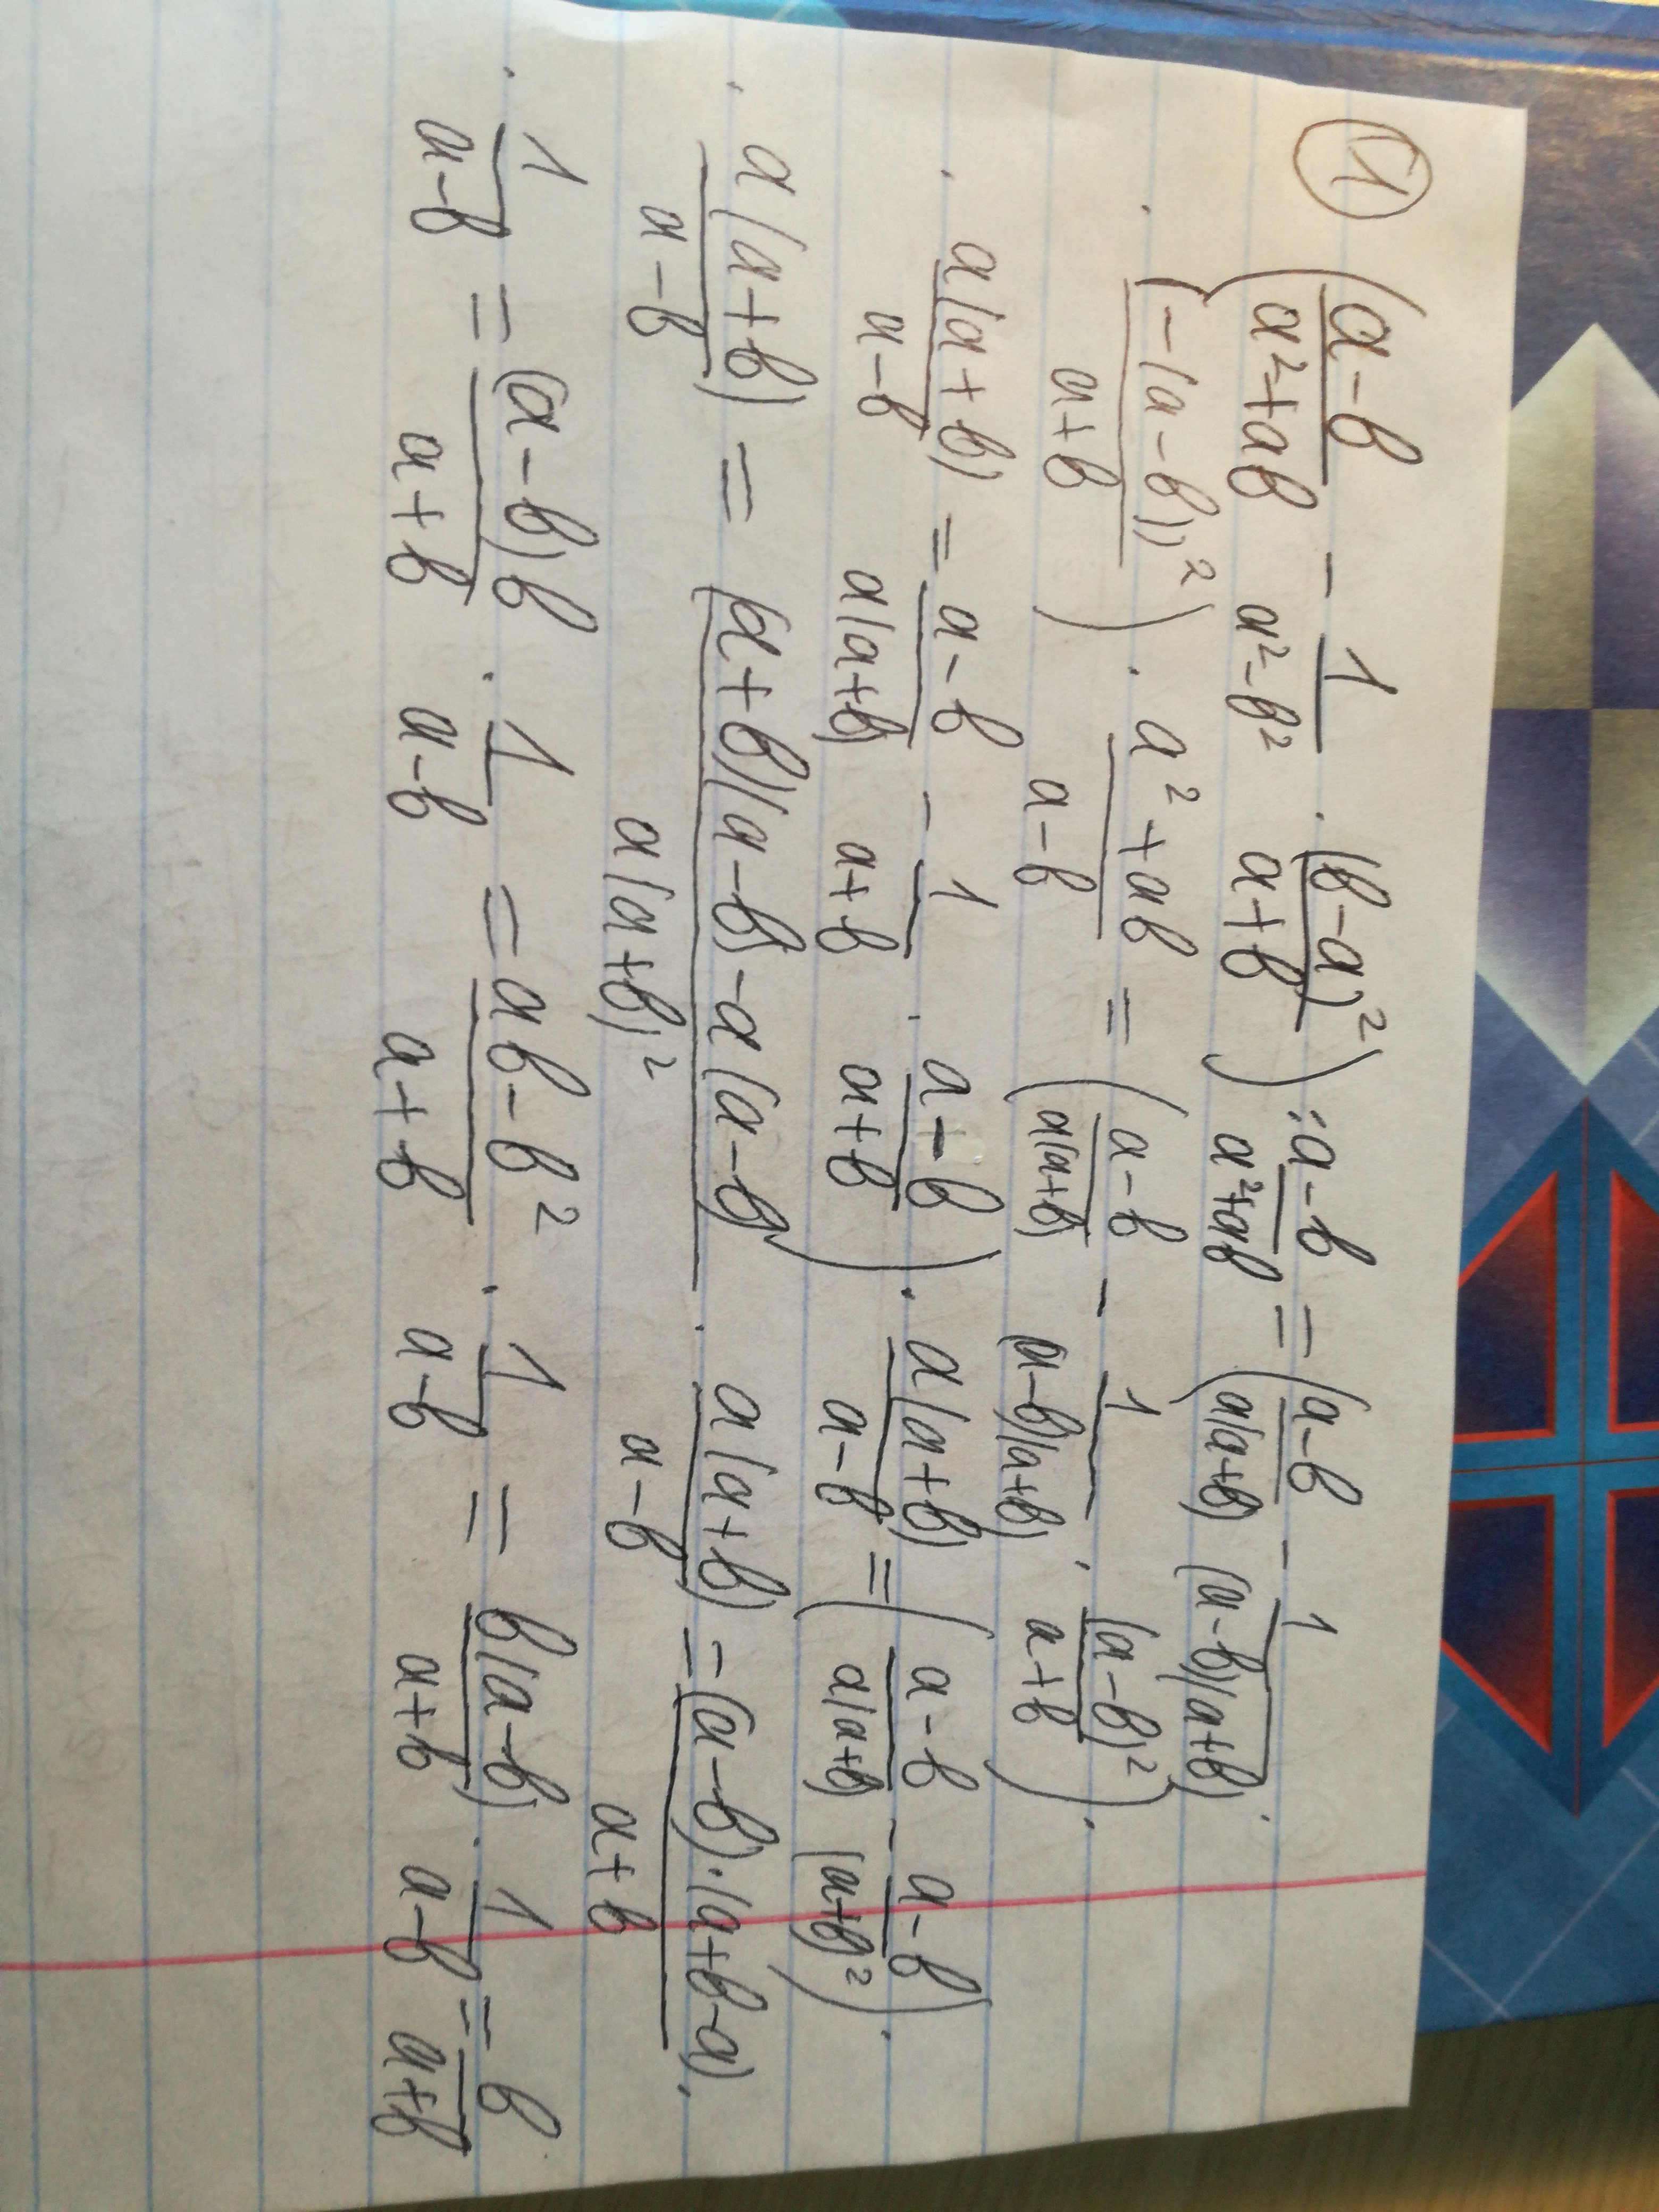 ① ((a-b)/(a²+ab) - 1/(a²-b²) · (b-a)²/(a+b)) : (a-b)/(a²+ab) = ((a-b)/(a(a+b)) - 1/((a-b)(a+b)) ·
· (-(a-b))²/(a+b)) · (a²+ab)/(a-b) = ((a-b)/(a(a+b)) - 1/((a-b)(a+b)) · (a-b)²/(a+b)) ·
· a(a+b)/(a-b) = (a-b)/(a(a+b)) - 1/(a+b) · (a-b)/(a+b)) · a(a+b)/(a-b) = ((a-b)/(a(a+b)) - (a-b)/(a+b)²) ·
· a(a+b)/(a-b) = ((a+b)(a-b) - a(a-b))/(a(a+b)²) · a(a+b)/(a-b) = (a-b)·(a+b-a)/(a+b) ·
· 1/(a-b) = (a-b)b/(a+b) · 1/(a-b) = (ab-b²)/(a+b) · 1/(a-b) = b(a-b)/(a+b) · 1/(a-b) = b/(a+b)